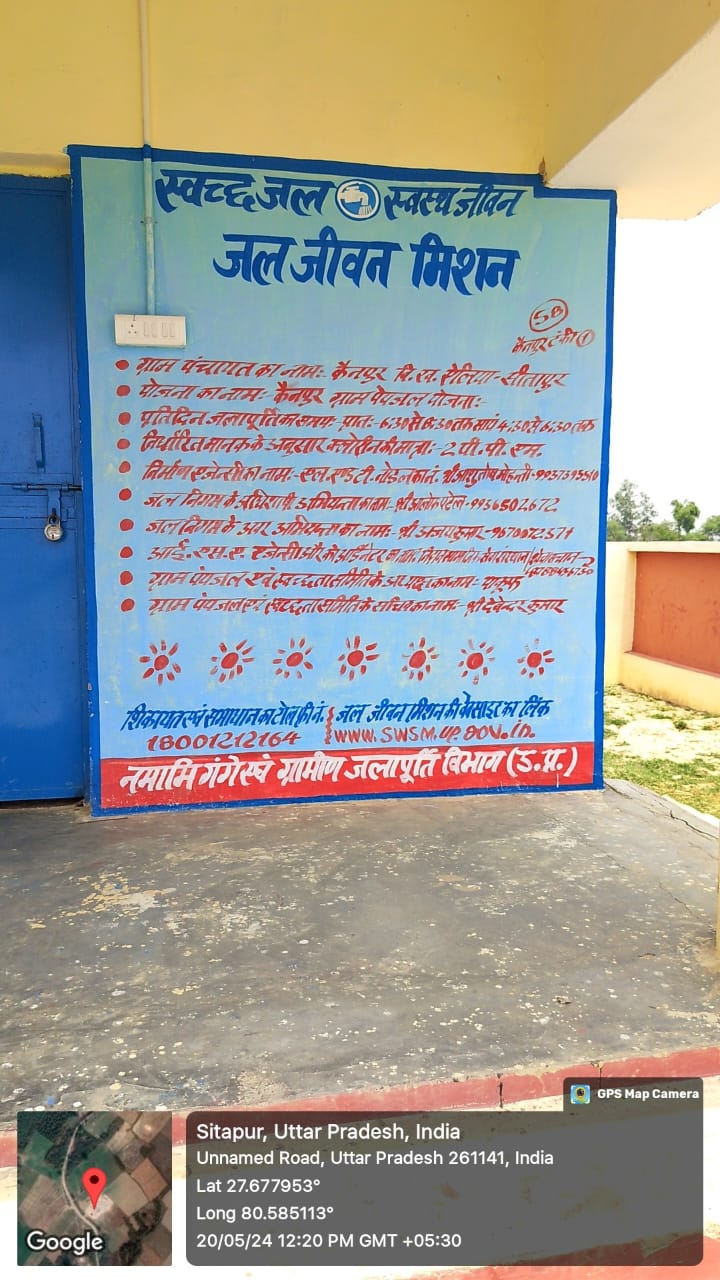 स्वच्छ जल स्वस्थ जीवन
जल जीवन मिशन
58
कैनपुर टंकी 1
ग्राम पंचायत का नामः- कैनपुर वि.ख. ऐलिया- सीतापुर
योजना का नामः- कैनपुर ग्राम पेयजल योजनाः-
प्रतिदिन जलापूर्ति का समयः- प्रातः- 6:30 से 8:30 तक सायं 4:30 से 6:30 तक
निर्धारित मानक के अनुसार क्लोरीन की मात्राः- 2 पी. पी. एम.
निर्माण एजेन्सी का नामः- एल. एण्ड टी. नोडल का नं. श्री आशुतोष मोहन्ती-
जल निगम के अधिशासी अभियन्ता का नामः- श्री आलोक पटेल- 9936502672
जल निगम के अवर अभियन्ता का नामः- श्री अजय कुमार- 9670072571
आई. एस. ए. एजेन्सी और को-आर्डिनेटर का नामः
ग्राम पेयजल एवं स्वच्छता समिति के अध्यक्ष का नामः-
ग्राम पेयजल एवं स्वच्छता समिति के सचिव का नामः- श्री देवेन्दर कुमार
शिकायत एवं समाधान का टोल फ्री नं. जल जीवन मिशन की वेबसाइट का लिंक
18001212164 www.swsm.up.gov.in.
नमामि गंगे एवं ग्रामीण जलापूर्ति विभाग (उ.प्र.)
GPS Map Camera
Sitapur, Uttar Pradesh, India
Unnamed Road, Uttar Pradesh 261141, India
Lat 27.677953°
Long 80.585113°
20/05/24 12:20 PM GMT +05:30
Google